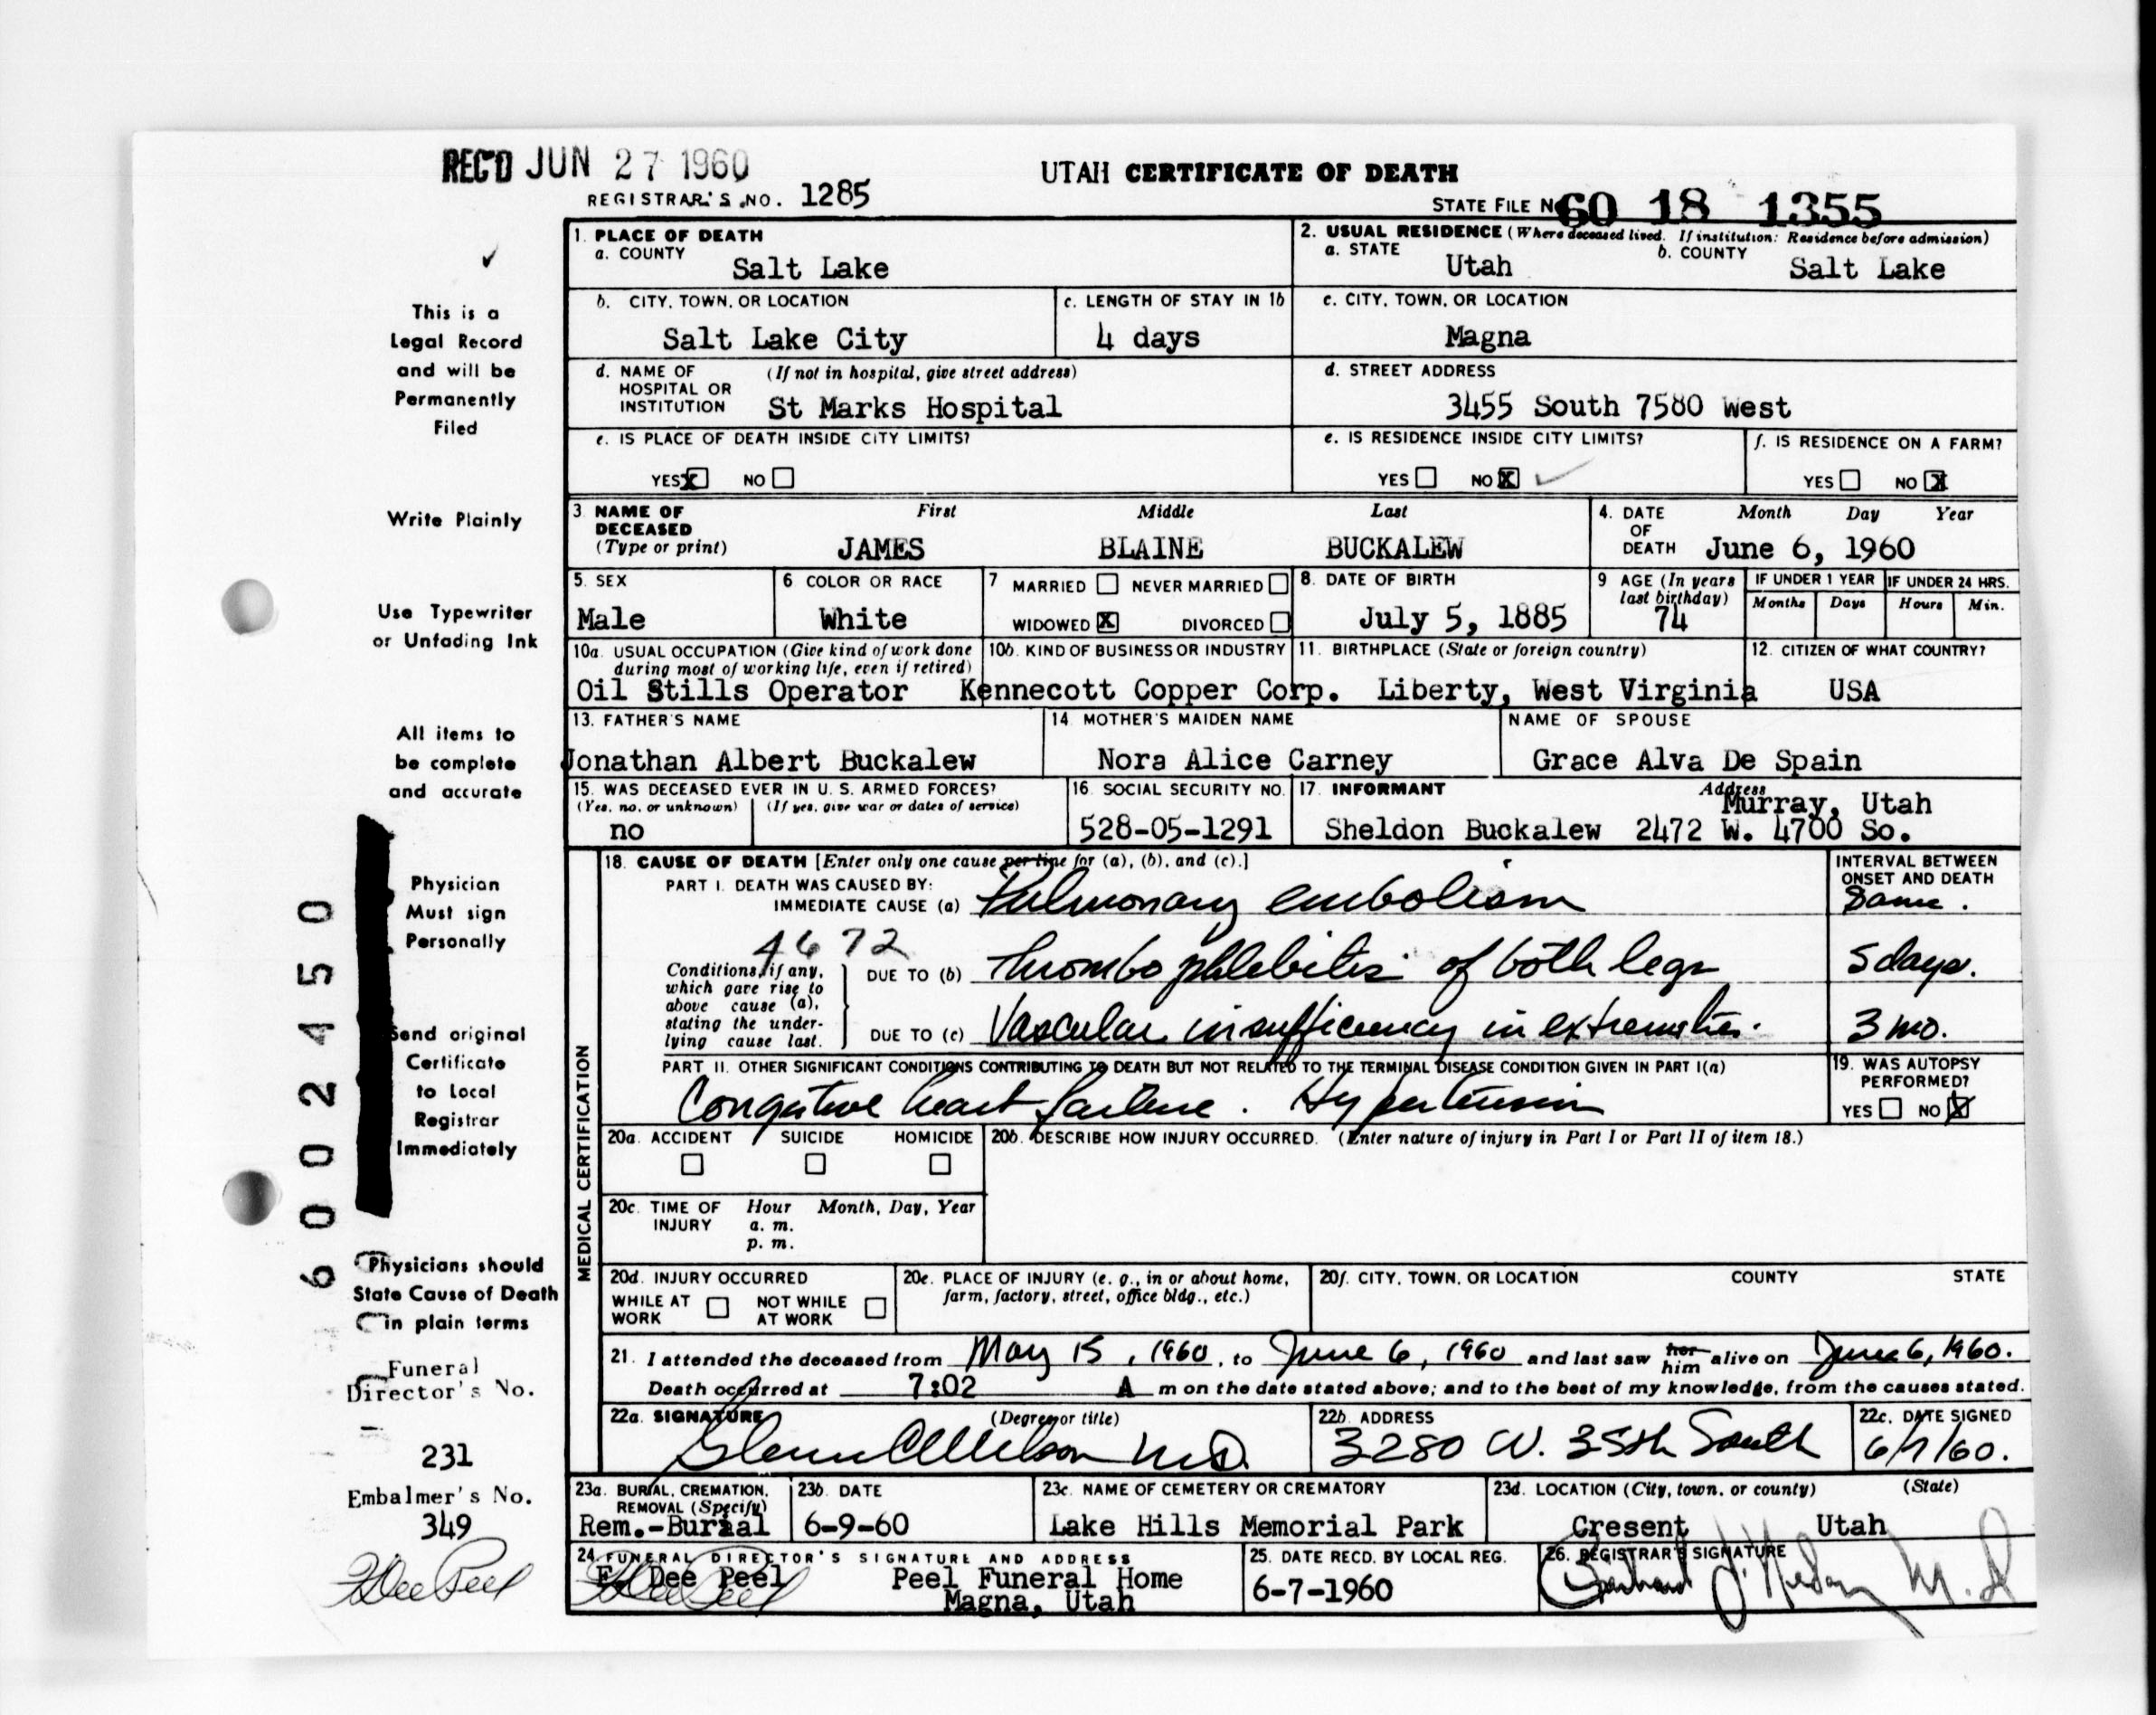 REC'D JUN 27 1960
UTAH CERTIFICATE OF DEATH
REGISTRAR'S NO. 1285
STATE FILE No 60 18 1355
1. PLACE OF DEATH
a. COUNTY Salt Lake
2. USUAL RESIDENCE (Where deceased lived. If institution: Residence before admission)
a. STATE Utah b. COUNTY Salt Lake
b. CITY, TOWN, OR LOCATION Salt Lake City
c. LENGTH OF STAY IN 1b 4 days
c. CITY, TOWN, OR LOCATION Magna
d. NAME OF HOSPITAL OR INSTITUTION (If not in hospital, give street address) St Marks Hospital
d. STREET ADDRESS 3455 South 7580 West
e. IS PLACE OF DEATH INSIDE CITY LIMITS?
YES X NO
e. IS RESIDENCE INSIDE CITY LIMITS?
YES NO X
f. IS RESIDENCE ON A FARM?
YES NO X
3. NAME OF DECEASED (Type or print)
First Middle Last
JAMES BLAINE BUCKALEW
4. DATE OF DEATH Month Day Year
June 6, 1960
5. SEX Male
6 COLOR OR RACE White
7 MARRIED NEVER MARRIED
WIDOWED X DIVORCED
8. DATE OF BIRTH July 5, 1885
9 AGE (In years last birthday) 74
IF UNDER 1 YEAR Months Days
IF UNDER 24 HRS. Hours Min.
10a. USUAL OCCUPATION (Give kind of work done during most of working life, even if retired)
Oil Stills Operator
10b. KIND OF BUSINESS OR INDUSTRY
Kennecott Copper Corp.
11. BIRTHPLACE (State or foreign country)
Liberty, West Virginia
12. CITIZEN OF WHAT COUNTRY?
USA
13. FATHER'S NAME
Jonathan Albert Buckalew
14. MOTHER'S MAIDEN NAME
Nora Alice Carney
NAME OF SPOUSE
Grace Alva De Spain
15. WAS DECEASED EVER IN U. S. ARMED FORCES?
(Yes, no, or unknown) (If yes, give war or dates of service)
no
16. SOCIAL SECURITY NO.
528-05-1291
17. INFORMANT Address
Murray, Utah
Sheldon Buckalew 2472 W. 4700 So.
MEDICAL CERTIFICATION
18. CAUSE OF DEATH [Enter only one cause per line for (a), (b), and (c).]
INTERVAL BETWEEN ONSET AND DEATH
PART I. DEATH WAS CAUSED BY:
IMMEDIATE CAUSE (a) Pulmonary embolism Same.
4672
Conditions, if any, which gave rise to above cause (a), stating the underlying cause last.
DUE TO (b) Thrombophlebitis of both legs 5 days.
DUE TO (c) Vascular insufficiency in extremities. 3 mo.
PART II. OTHER SIGNIFICANT CONDITIONS CONTRIBUTING TO DEATH BUT NOT RELATED TO THE TERMINAL DISEASE CONDITION GIVEN IN PART I(a)
Congestive heart failure. Hypertension
19. WAS AUTOPSY PERFORMED?
YES NO X
20a. ACCIDENT SUICIDE HOMICIDE
20b. DESCRIBE HOW INJURY OCCURRED. (Enter nature of injury in Part I or Part II of item 18.)
20c. TIME OF INJURY Hour Month, Day, Year
a. m.
p. m.
20d. INJURY OCCURRED
WHILE AT WORK NOT WHILE AT WORK
20e. PLACE OF INJURY (e. g., in or about home, farm, factory, street, office bldg., etc.)
20f. CITY, TOWN, OR LOCATION COUNTY STATE
21. I attended the deceased from May 15, 1960, to June 6, 1960 and last saw her him alive on June 6, 1960.
Death occurred at 7:02 A m on the date stated above; and to the best of my knowledge, from the causes stated.
22a. SIGNATURE (Degree or title)
M.D.
22b. ADDRESS
3280 W. 35th South
22c. DATE SIGNED
6/7/60.
23a. BURIAL, CREMATION, REMOVAL (Specify)
Rem.-Burial
23b. DATE
6-9-60
23c. NAME OF CEMETERY OR CREMATORY
Lake Hills Memorial Park
23d. LOCATION (City, town, or county) (State)
Cresent Utah
24. FUNERAL DIRECTOR'S SIGNATURE AND ADDRESS
E. Dee Peel Peel Funeral Home
Magna, Utah
25. DATE RECD. BY LOCAL REG.
6-7-1960
26. REGISTRAR'S SIGNATURE
M.D.
This is a
Legal Record
and will be
Permanently
Filed
Write Plainly
Use Typewriter
or Unfading Ink
All items to
be complete
and accurate
Physician
Must sign
Personally
Send original
Certificate
to Local
Registrar
Immediately
Physicians should
State Cause of Death
in plain terms
Funeral
Director's No.
231
Embalmer's No.
349
6002450